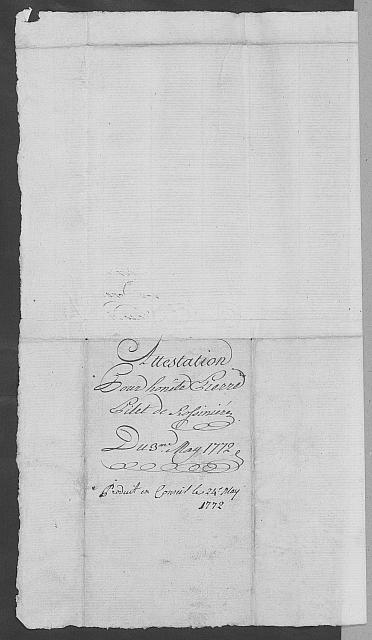 Attestation
Pour honéte Pierre
Pilet de Rossiniére
Du 3me May 1772
Produit en Conseil le 24e May
1772